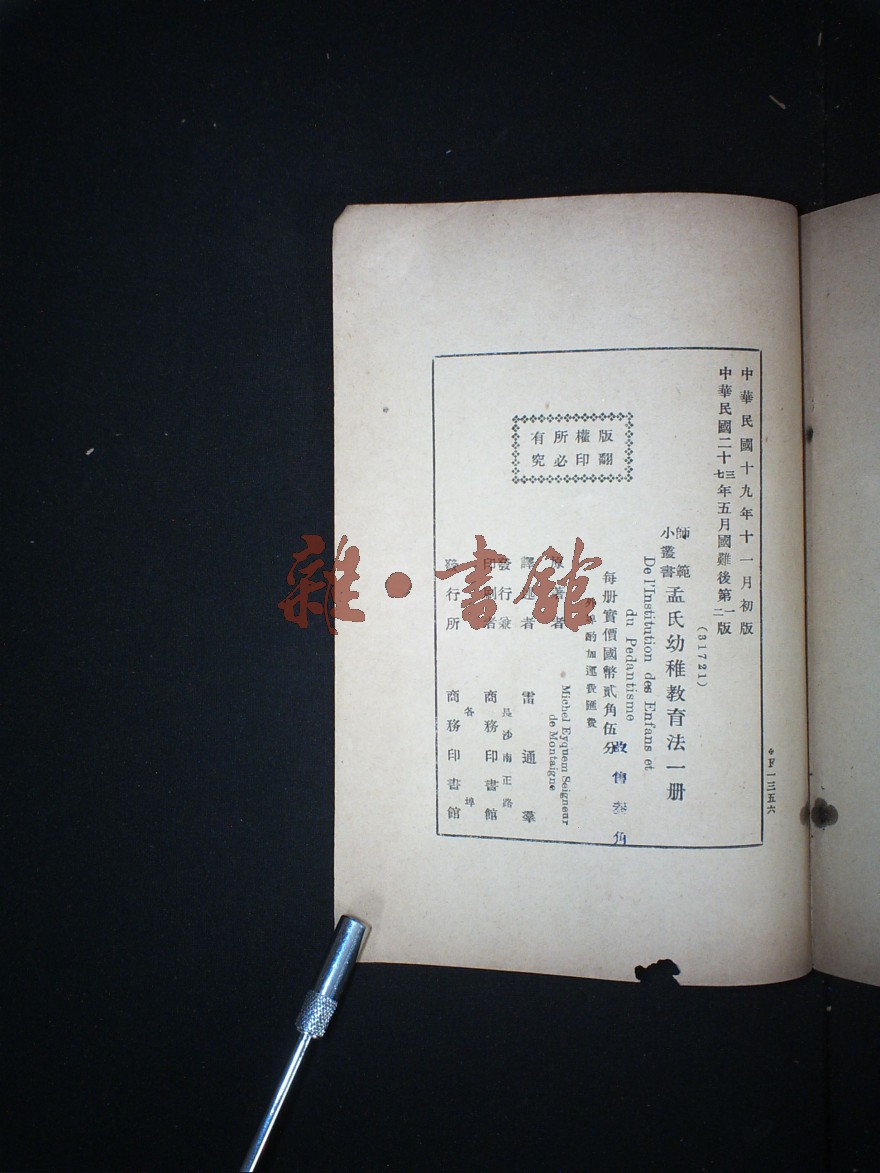 中華民國十九年十一月初版
中華民國二十三七年五月國難後第一二版
(31721)
師範小叢書
孟氏幼稚教育法一册
De l'Institution des Enfans et
du Pedantisme
每册實價國幣貳角伍分
改售叁角
外埠酌加運費匯費
原著者
Michel Eyquem Seigneur
de Montaigne
譯述者
雷通羣
發行兼
印刷者
長沙南正路
商務印書館
發行所
各埠
商務印書館
版權所有
翻印必究
F一三五六
雜·書館